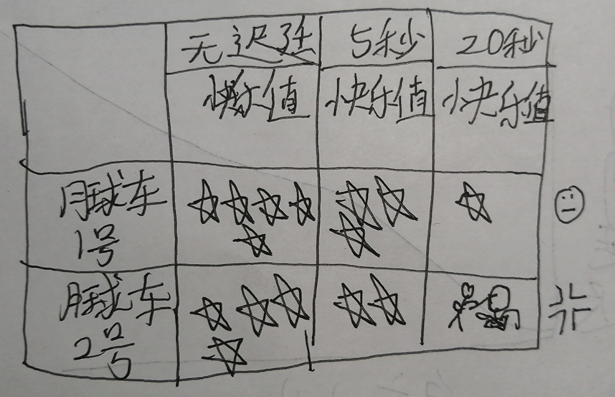 无迟延 5秒 20秒
快乐值 快乐值 快乐值
月球车
1号
月球车
2号